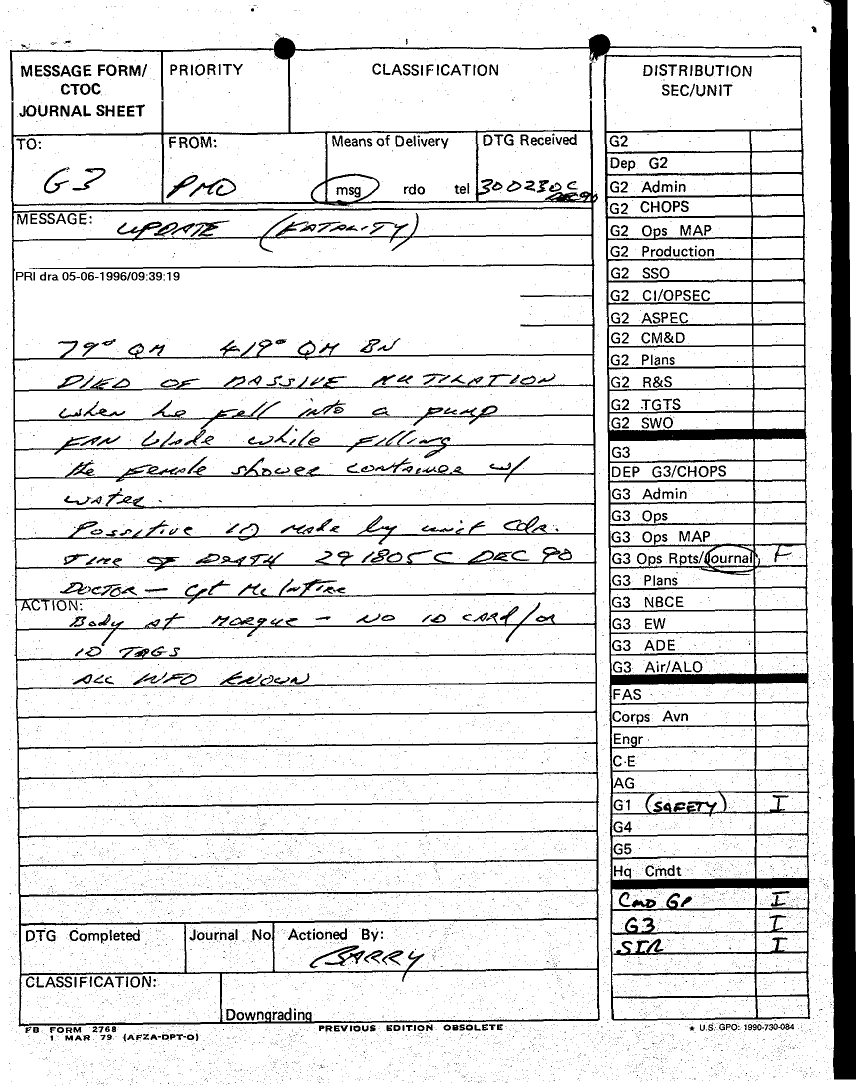 MESSAGE FORM/
CTOC
JOURNAL SHEET
PRIORITY
CLASSIFICATION
TO:
G3
FROM:
PMO
Means of Delivery
msg rdo tel
DTG Received
300230C
DEC 90
MESSAGE: UPDATE (FATALITY)
PRI dra 05-06-1996/09:39:19
79° QM 419° QM BN
DIED OF MASSIVE MUTILATION
when he fell into a pump
FAN blade while filling
the female shower container w/
water.
Possitive ID made by unit Cdr.
Time of DEATH 291805C DEC 90
DOCTOR — Cpt McIntire
ACTION:
Body at MORGUE — NO ID CARD/or
ID TAGS
ALL INFO KNOWN
DTG Completed
Journal No
Actioned By:
BARRY
CLASSIFICATION:
Downgrading
FB FORM 2768
1 MAR 79 (AFZA-DPT-O)
PREVIOUS EDITION OBSOLETE
DISTRIBUTION
SEC/UNIT
G2
Dep G2
G2 Admin
G2 CHOPS
G2 Ops MAP
G2 Production
G2 SSO
G2 CI/OPSEC
G2 ASPEC
G2 CM&D
G2 Plans
G2 R&S
G2 TGTS
G2 SWO
G3
DEP G3/CHOPS
G3 Admin
G3 Ops
G3 Ops MAP
G3 Ops Rpts/Journal F
G3 Plans
G3 NBCE
G3 EW
G3 ADE
G3 Air/ALO
FAS
Corps Avn
Engr
C-E
AG
G1 (SAFETY) I
G4
G5
Hq Cmdt
Cmd GP I
G3 I
SIR I
★ U.S. GPO: 1990-730-084